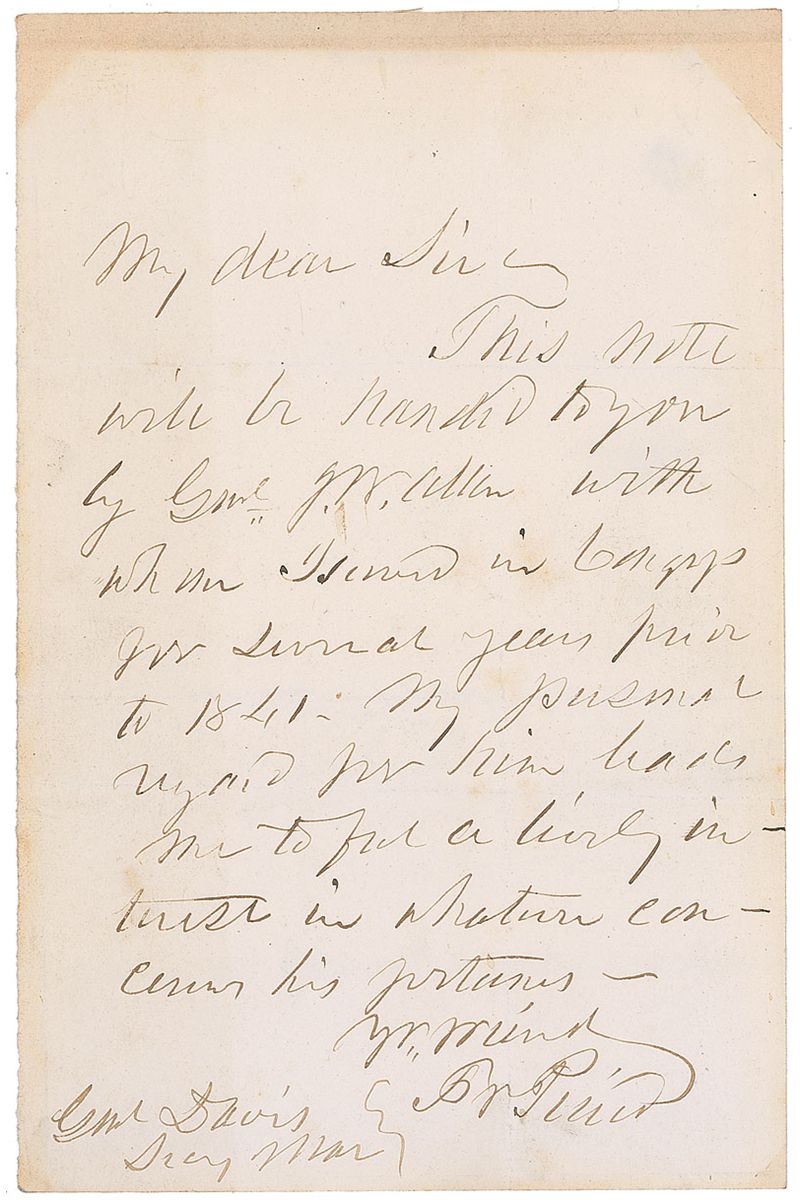 My dear Sir
This note
will be handed to you
by Genl J. W. Allen with
whom I served in Congress
for several years prior
to 1841 - My personal
regard for him leads
me to feel a lively in-
terest in whatever con-
cerns his fortunes -
Yr. friend
Fr Pierce
Genl Davis
Secy War